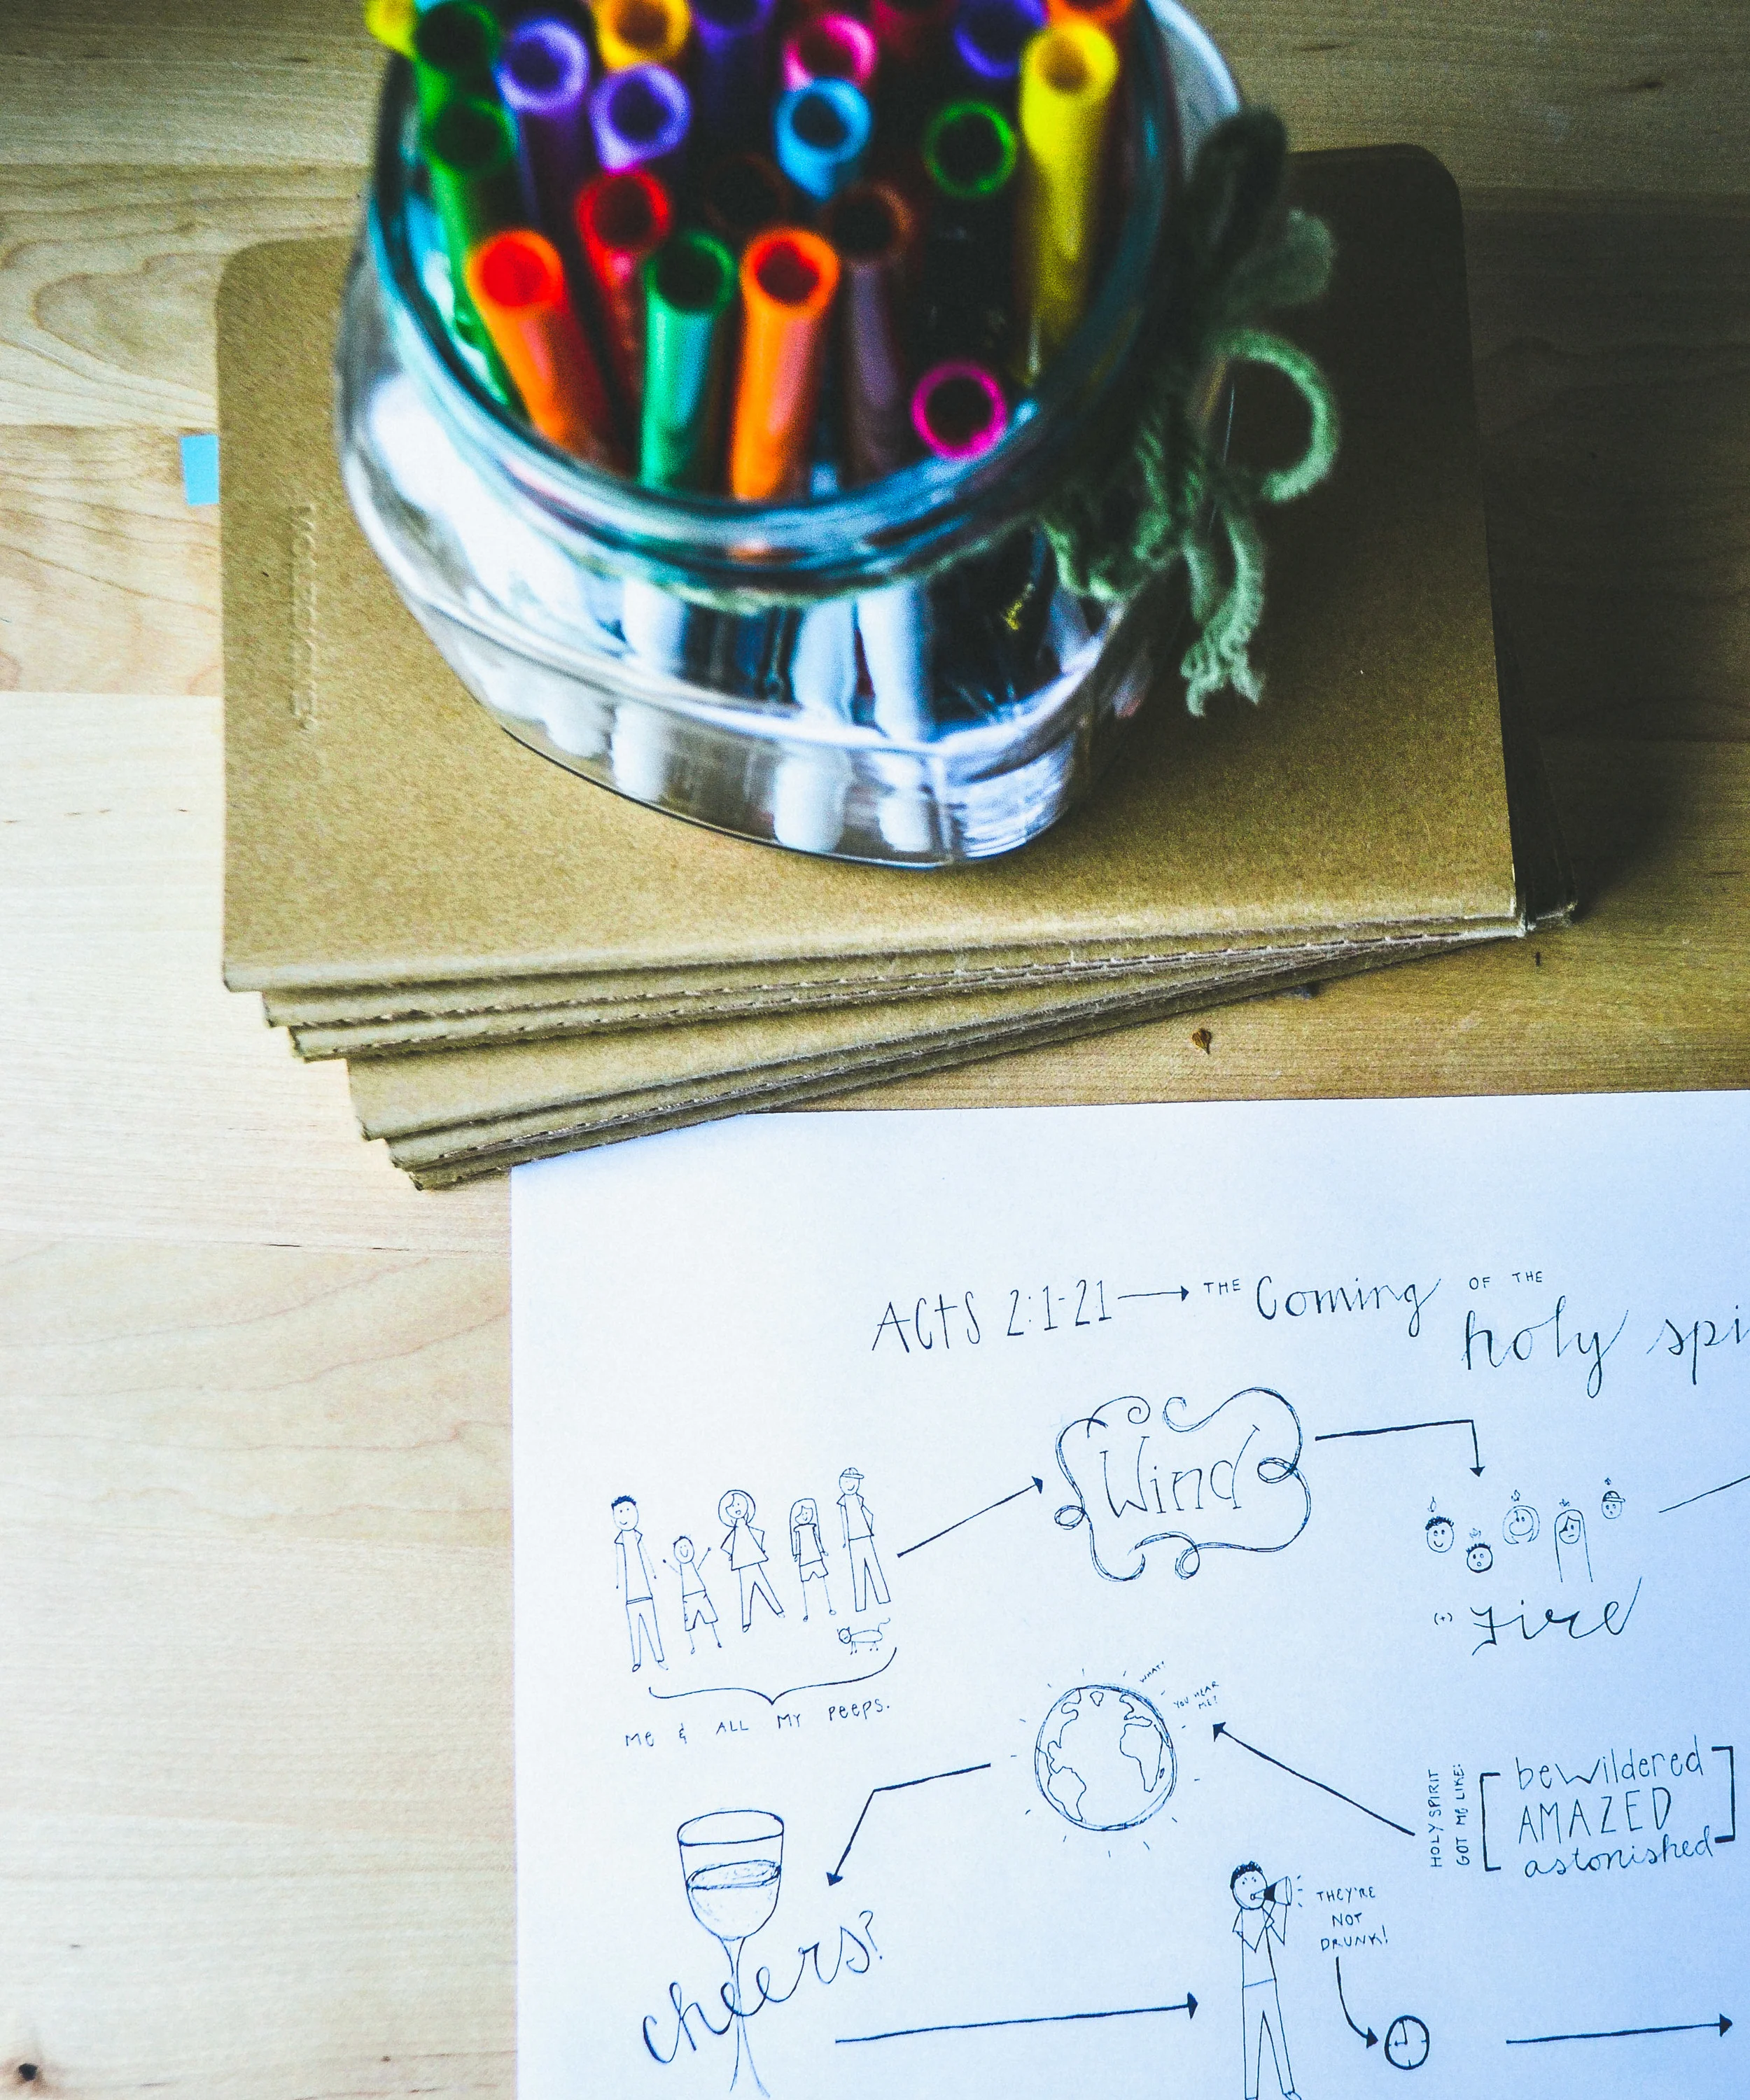 MOLESKINE
ACTS 2:1-21 → THE Coming OF THE
holy spi
Wind
(+) Fire
ME & ALL MY PEEPS.
WHAT?
YOU HEAR
ME?
HOLY SPIRIT
GOT ME LIKE:
bewildered
AMAZED
astonished
cheers?
THEY'RE
NOT
DRUNK!